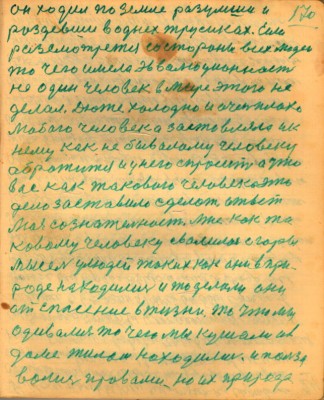 он ходил по земле разумши и 170
раздевши в однех трусиках. Если
розсмотрется состороны всех людей
то чего имела Эволюционность
не один человек в мире этого не
делал. Дюже холодно и очен плохо
любого человека заставляла ик
нему как не бывалому человеку
обротится и у него спросит, а что
вас как такового человека это
дело заставило сделат. ответ
моя сознателност. Мне как та
ковому человеку свалилас с горы
мысел улюдей таких как они в при
роде находилися и то делали они
от спасение в жизни. то что мы
одивалися то чего мы кушали и в
доме жилом находилис. и полза
волис правами, но их природа